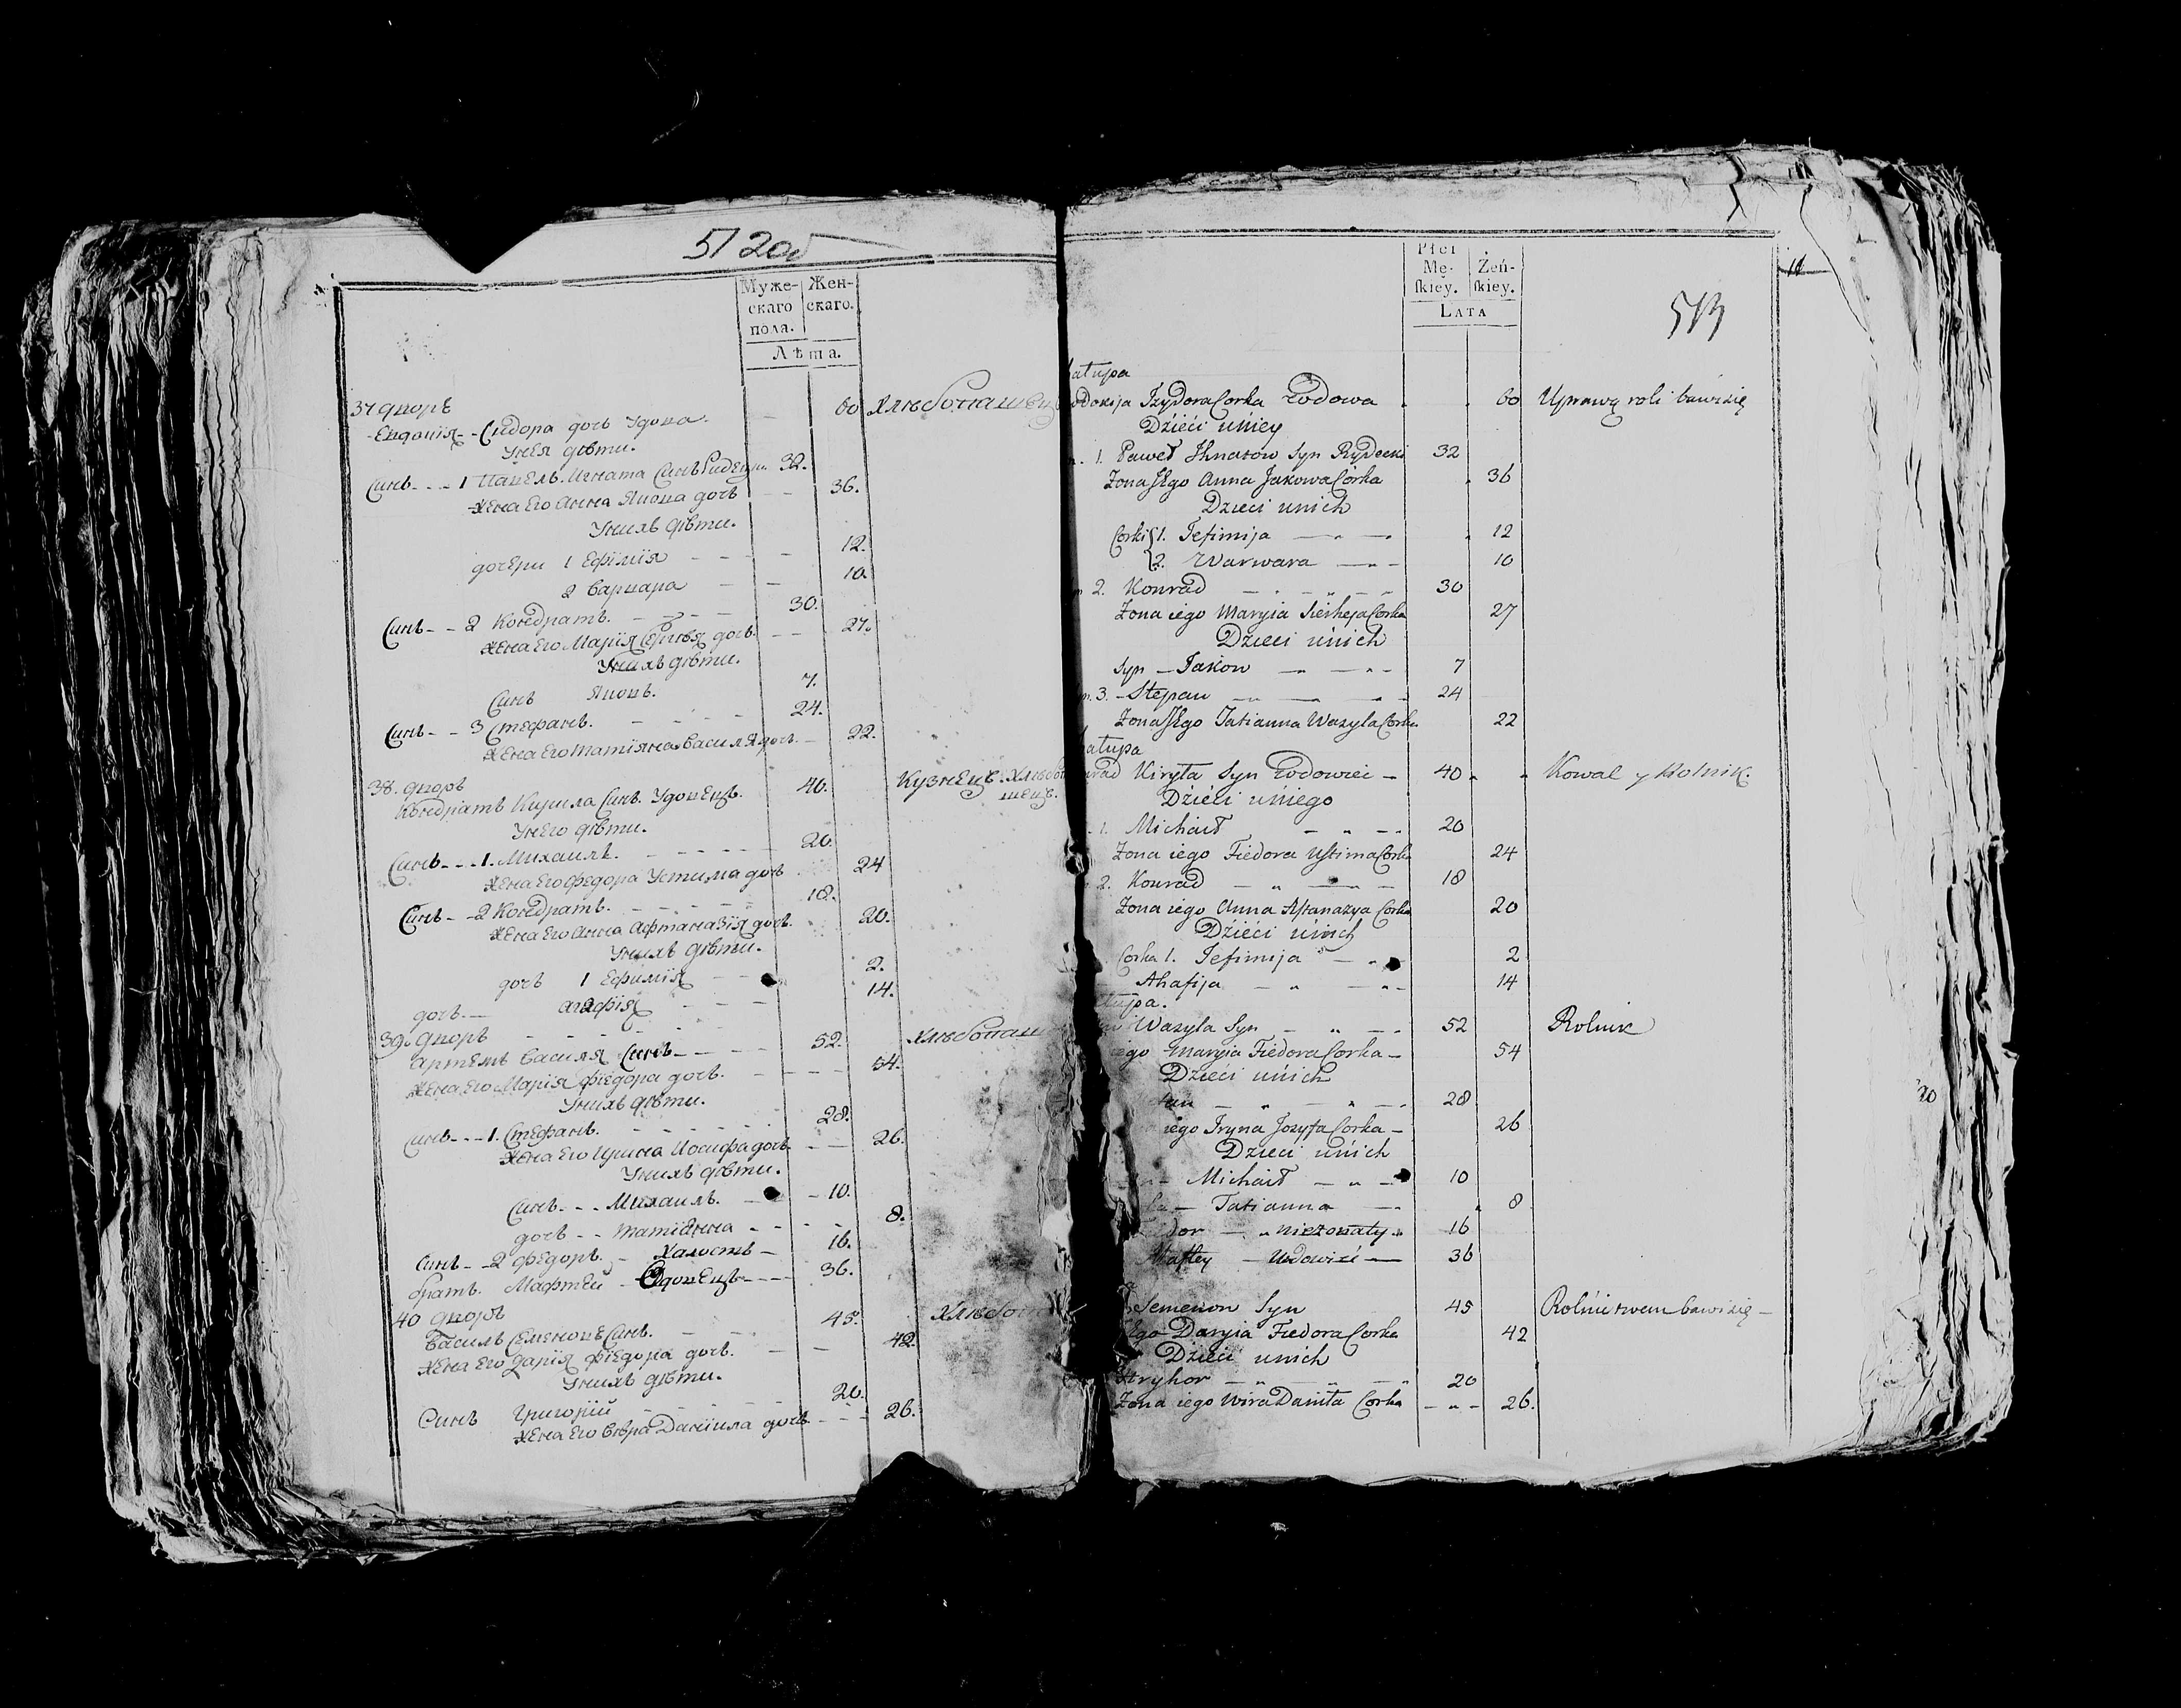 512об
Муже-
скаго
пола.
Жен-
скаго.
Лѣта.
37 дворъ
Евдокія Сидора дочь Удова. 60 Хлѣбопашец
У нея дѣти.
Синъ 1 Павелъ Игната Синъ 32.
Жена Его Анна Якова дочь 36.
У нихъ дѣти.
дочери 1 Ефимія 12.
2 Варвара 10.
Синъ 2 Кондратъ. 30.
Жена Его Марія Сергѣя дочь. 27.
У нихъ дѣти.
Синъ Яковъ. 7.
Синъ 3 Стефанъ. 24.
Жена Его Татіяна Василя дочь. 22.
38. дворъ
Кондратъ Кирила Синъ. Удовецъ. 40. Кузнецъ. Хлѣбо
шецъ.
У Него дѣти.
Синъ 1. Михаилъ. 20.
Жена Его Федора Устима дочь 24
Синъ 2 Кондратъ. 18.
Жена Его Анна Афтаназія дочь. 20.
У нихъ дѣти.
дочь 1 Ефимія 2.
дочь Агафія 14.
39. дворъ
Артемъ Василя Синъ 52. Хлѣбопаш
Жена Его Марія Фіедора дочь. 54.
У нихъ дѣти.
Синъ 1. Стефанъ. 28.
Жена Его Ирина Иосифа дочь 26.
У нихъ дѣти.
Синъ Михаилъ. 10.
дочь Татіанна 8.
Синъ 2 Федоръ. Халостъ 16.
братъ. Мафтей Удовецъ 36.
40 дворъ
Василь Семеновъ Синъ. 45. Хлѣбоп
Жена Его Дарія Фіедора дочь. 42.
У нихъ дѣти.
Синъ Григорій 20.
Жена Его Вѣра Даніила дочь 26.
Płci
Mę-
skiey.
Żeń-
skiey.
LATA
513
11
atupa
odokija Izydora Corka Wdowa 60 Uprawą roli bawi się
Dzieci u niey
1. Paweł Ihnatow Syn Rydecki 32
Zona Jego Anna Jakowa Corka 36
Dzieci u nich
Corki 1. Jefimija 12
2. Warwara 10
2. Konrad 30
Zona iego Maryia Sierheja Corka 27
Dzieci u nich
Syn Jakow 7
3. Stepan 24
Zona Jego Tatianna Wasyla Corka 22
atupa
rad Kiryła Syn Wdowiec 40 Kowal y Rolnik.
Dzieci u niego
1. Michaił 20
Zona iego Fiedora Ustima Corka 24
2. Konrad 18
Zona iego Anna Aftanazya Corka 20
Dzieci u nich
Corka 1. Jefimija 2
Ahafija 14
tupa.
Wasyla Syn 52 Rolnik
iego Maryia Fiedora Corka 54
Dzieci u nich
pan 28
iego Iryna Jozyfa Corka 26
Dzieci u nich
Michaił 10
Tatianna 8
dor niezonaty 16
Maftey Wdowiec 36
Semenow Syn 45 Rolnictwem bawi się
Jego Daryia Fiedora Corka 42
Dzieci u nich
Hryhor 20
Zona iego Wira Daniła Corka 26.